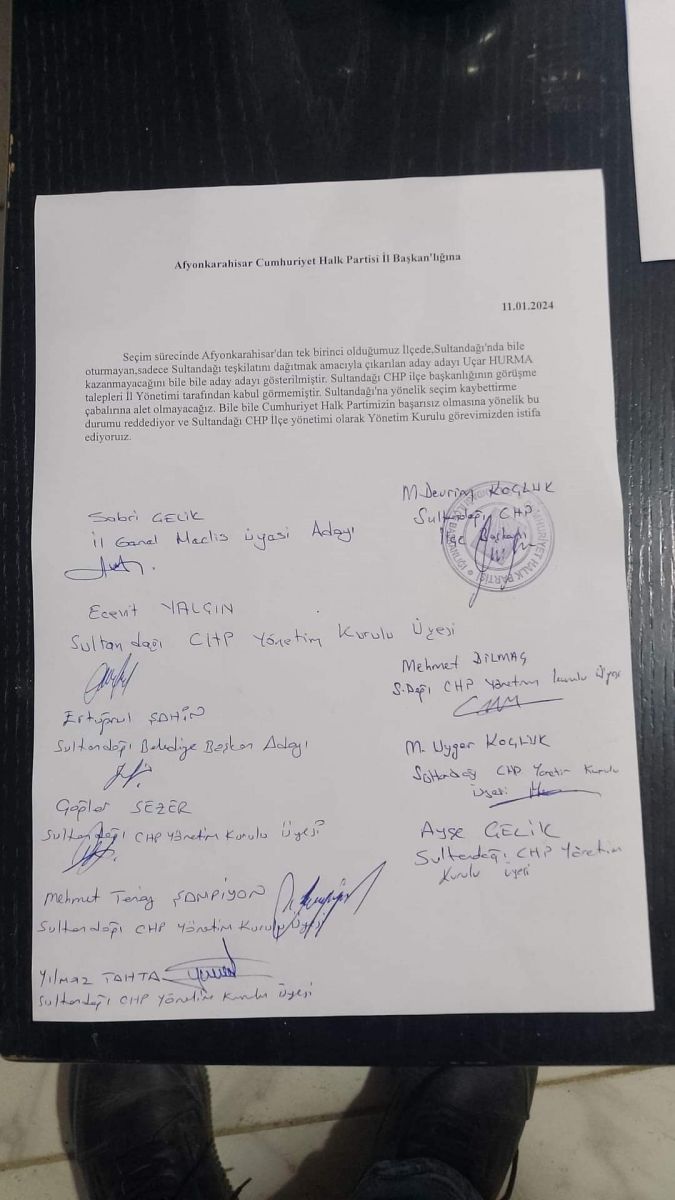 Afyonkarahisar Cumhuriyet Halk Partisi İl Başkan'lığına
11.01.2024
Seçim sürecinde Afyonkarahisar'dan tek birinci olduğumuz İlçede,Sultandağı'nda bile
oturmayan,sadece Sultandağı teşkilatını dağıtmak amacıyla çıkarılan aday adayı Uçar HURMA
kazanmayacağını bile bile aday adayı gösterilmiştir. Sultandağı CHP ilçe başkanlığının görüşme
talepleri İl Yönetimi tarafından kabul görmemiştir. Sultandağı'na yönelik seçim kaybettirme
çabalarına alet olmayacağız. Bile bile Cumhuriyet Halk Partimizin başarısız olmasına yönelik bu
durumu reddediyor ve Sultandağı CHP İlçe yönetimi olarak Yönetim Kurulu görevimizden istifa
ediyoruız.
M.Devrim KOÇLUK
Sultandağı CHP
İlçe Başkanı
CUMHURİYET HALK PARTİSİ
Sabri ÇELİK
İl Genel Meclis Üyesi Adayı
Ecevit YALÇIN
Sultandağı CHP Yönetim Kurulu Üyesi
Mehmet DİLMAÇ
S.Dağı CHP Yönetim Kurulu Üyesi
Ertuğrul ŞAHİN
Sultandağı Belediye Başkan Adayı
M. Uygar KOÇLUK
Sultandağı CHP Yönetim Kurulu
Üyesi
SEZER
Sultandağı CHP Yönetim Kurulu Üyesi
Ayşe ÇELİK
Sultandağı CHP Yönetim
Kurulu üyesi
Mehmet ŞAMPİYON
Sultandağı CHP Yönetim Kurulu Üyesi
Yılmaz TAHTA
Sultandağı CHP Yönetim Kurulu Üyesi